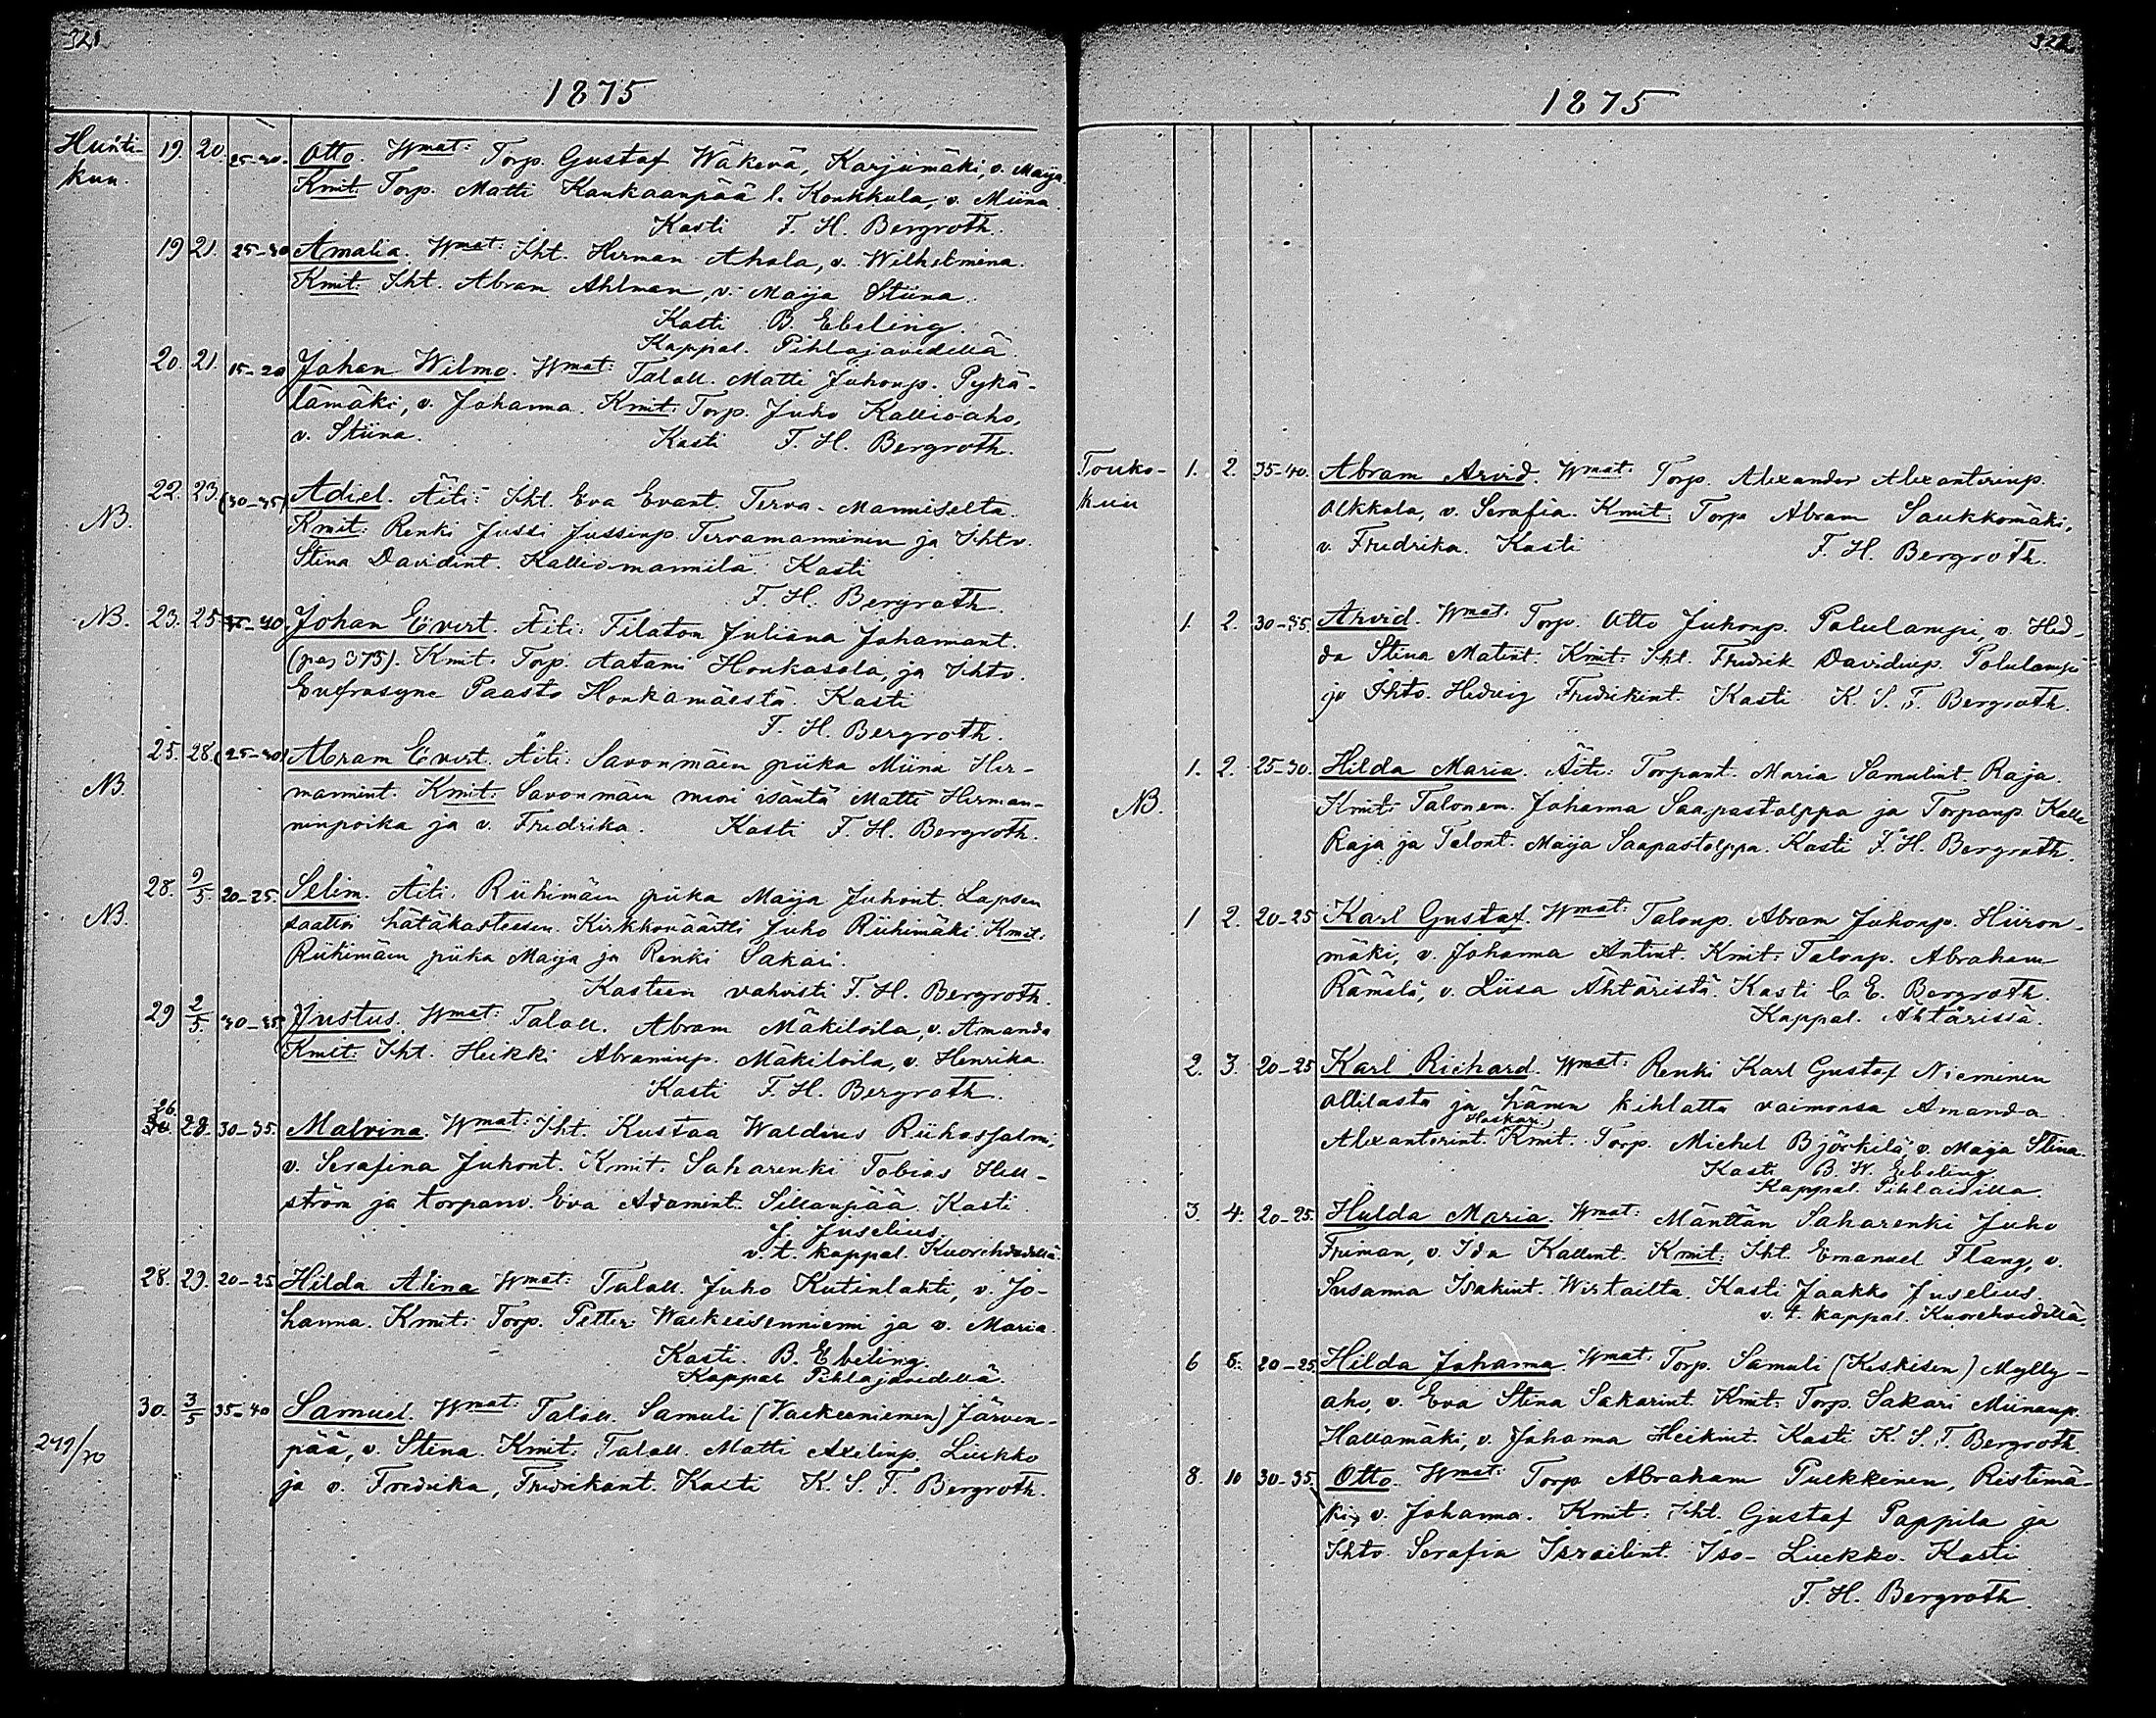 321
1875
Huhti-
kuu.
19. 20. 25-30. Otto. Wmat: Torp. Gustaf Wäkevä, Karjumäki, v. Maija.
Kmit: Torp. Matti Kankaanpää l. Konkkula, v. Miina.
Kasti F. H. Bergroth.
19 21. 25-30 Amalia. Wmat: Iht. Herman Ahola, v. Wilhelmina.
Kmit: Iht. Abram Ahlman, v. Maija Stiina.
Kasti B. Ebeling.
Kappal. Pihlajavedellä.
20. 21. 15-20 Johan Wilmo. Wmat: Talall. Matti Juhonp. Pykä-
lämäki, v. Johanna. Kmit: Torp. Juho Kallioaho,
v. Stiina. Kasti F. H. Bergroth.
NB. 22. 23. (30-35) Adiel. Äiti: Iht. Eva Evant. Terva-Manniselta.
Kmit: Renki Jussi Jussinp. Tervamanninen ja Ihtv.
Stina Davidint. Kalliomannila. Kasti
F. H. Bergroth.
NB. 23. 25. 35-40. Johan Evert. Äiti: Tilaton Juliana Johannant.
(pag 375). Kmit: Torp. Aatami Honkasola, ja Ihtv.
Eufrasyne Paasto Honkamäestä. Kasti
F. H. Bergroth.
NB. 25. 28. (25-30) Abram Evert. Äiti: Savonmäen piika Miina Her-
mannint. Kmit: Savonmäen nuori isäntä Matti Herman-
ninpoika ja v. Fredrika. Kasti F. H. Bergroth.
NB. 28. 9/5. 20-25. Selim. Äiti: Riihimäen piika Maija Juhont. Lapsen
saatti hätäkasteesen Kirkkoväärtti Juho Riihimäki. Kmit:
Riihimäen piika Maija ja Renki Sakari.
Kasteen vahvisti F. H. Bergroth.
29 2/5. 30-35 Justus. Wmat: Talall. Abram Mäkiloila, v. Amanda
Kmit: Iht. Heikki Abraminp. Mäkiloila, v. Henrika.
Kasti F. H. Bergroth.
26. 28. 30-35. Malvina. Wmat: Iht. Kustaa Waldius Riihossalmi,
v. Serafina Juhont. Kmit: Saharenki Tobias Hell-
ström ja torpanv. Eva Adamint. Sillanpää. Kasti
J. Juselius,
v. t. kappal. Kuorehvedellä.
28. 29. 20-25 Hilda Alina Wmat: Talall. Juho Kutinlahti, v. Jo-
hanna. Kmit: Torp. Petter Waekeisenniemi ja v. Maria.
Kasti. B. Ebeling.
Kappal. Pihlajavedellä.
249/70 30. 3/5 35-40 Samuel. Wmat: Talall. Samuli (Vaekeeniemen) Järven-
pää, v. Stina. Kmit: Talall. Matti Axelinp. Liukko
ja v. Fredrika, Fredrikant. Kasti K. S. F. Bergroth.
322.
1875
Touko-
kuu
1. 2. 35-40. Abram Arvid. Wmat: Torp. Alexander Alexanterinp.
Alkkala, v. Serafia. Kmit: Torp. Abram Saukkomäki,
v. Fredrika. Kasti F. H. Bergroth.
1. 2. 30-35. Arvid. Wmat: Torp. Otto Juhonp. Polulampi, v. Hed-
da Stina Matint. Kmit: Iht. Fredrik Davidinp. Polulampi
ja Ihtv. Hedvig Fredrikint. Kasti K. S. F. Bergroth.
NB. 1. 2. 25-30. Hilda Maria. Äiti: Torpant. Maria Samulint. Raja.
Kmit: Talonem. Johanna Saapastolppa ja Torpanp. Kalle
Raja ja Talont. Maija Saapastolppa. Kasti F. H. Bergroth.
1 2. 20-25 Karl Gustaf. Wmat: Talonp. Abram Juhonp. Hiiron-
mäki, v. Johanna Antint. Kmit: Talonp. Abraham
Rämälä, v. Liisa Ähtäristä. Kasti C. E. Bergroth.
Kappal. Ähtärissä.
2. 3. 20-25 Karl Richard. Wmat: Renki Karl Gustaf Nieminen
Ollilasta ja hänen kihlattu vaimonsa Amanda
Alexanterint. Kmit: Torp. Michel Björkilä, v. Maija Stina.
Kasti B. W. Eebeling
Kappal.
3. 4. 20-25. Hulda Maria. Wmat: Mänttän Saharenki Juho
Friman, v. Ida Kallent. Kmit: Iht. Emanuel Flang, v.
Susanna Isakint. Wirtailta. Kasti Jaakko Juselius.
v. t. kappal. Kuorehvedellä.
6 8. 20-25. Hilda Johanna. Wmat: Torp. Samuli (Kiskisen) Mylly-
aho, v. Eva Stina Sakarint. Kmit: Torp. Sakari Miinanp.
Hallamäki, v. Johanna Heikint. Kasti K. S. F. Bergroth
8. 10 30-35. Otto. Wmat: Torp Abraham Pulkkinen, Ristimä-
ki, v. Johanna. Kmit: Iht. Gustaf Pappila ja
Ihtv. Serafia Israelint. Iso-Liukko. Kasti
F. H. Bergroth.